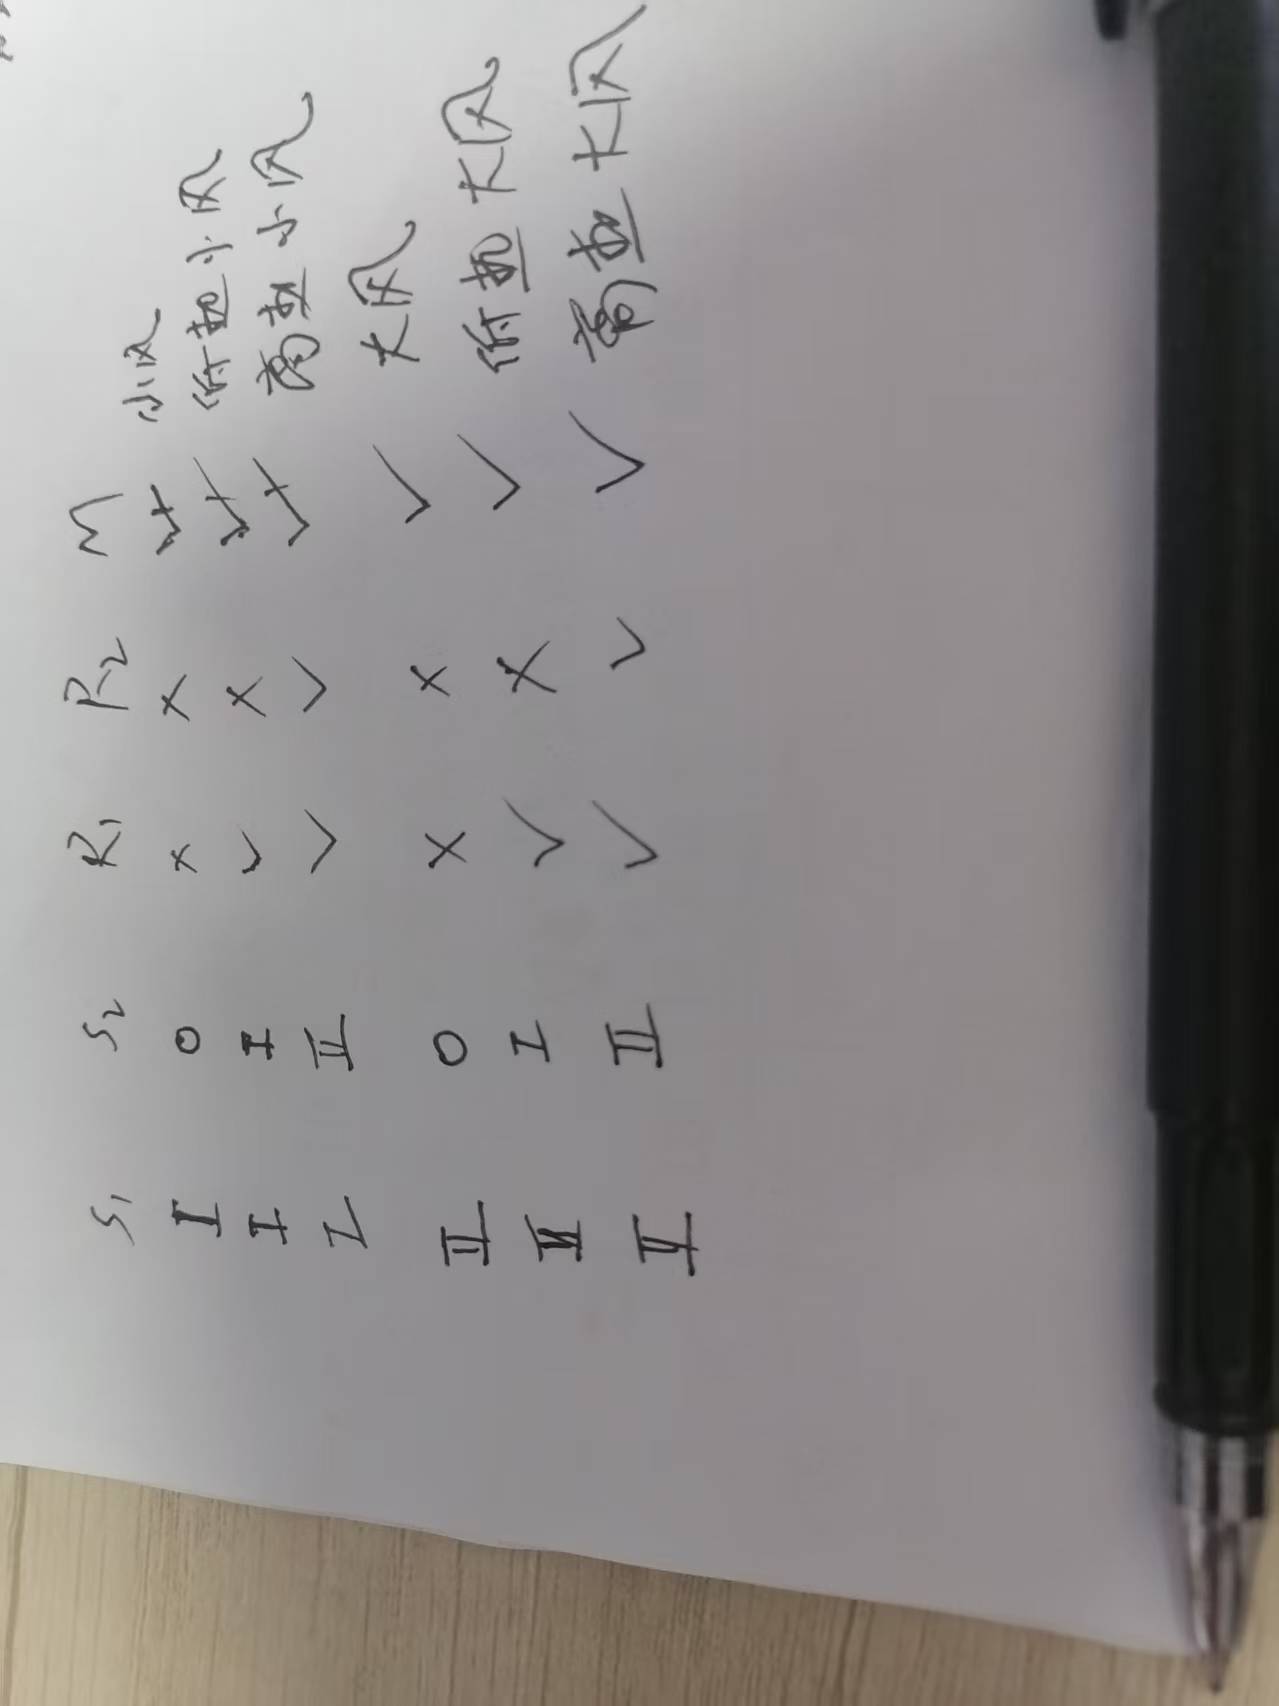 S1 S2 R1 R2 M
I O × × 小风
I I √ × 低热小风
I II √ √ 高热小风
II O × × √ 大风
II I √ × √ 低热大风
II II √ √ √ 高热大风